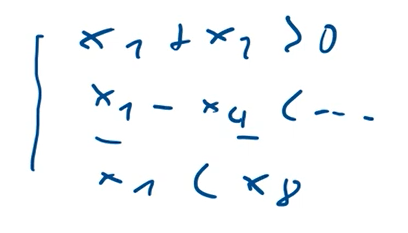 x₁ + x₂ > 0
x₁ - x₄ < ---
x₁ < x₈